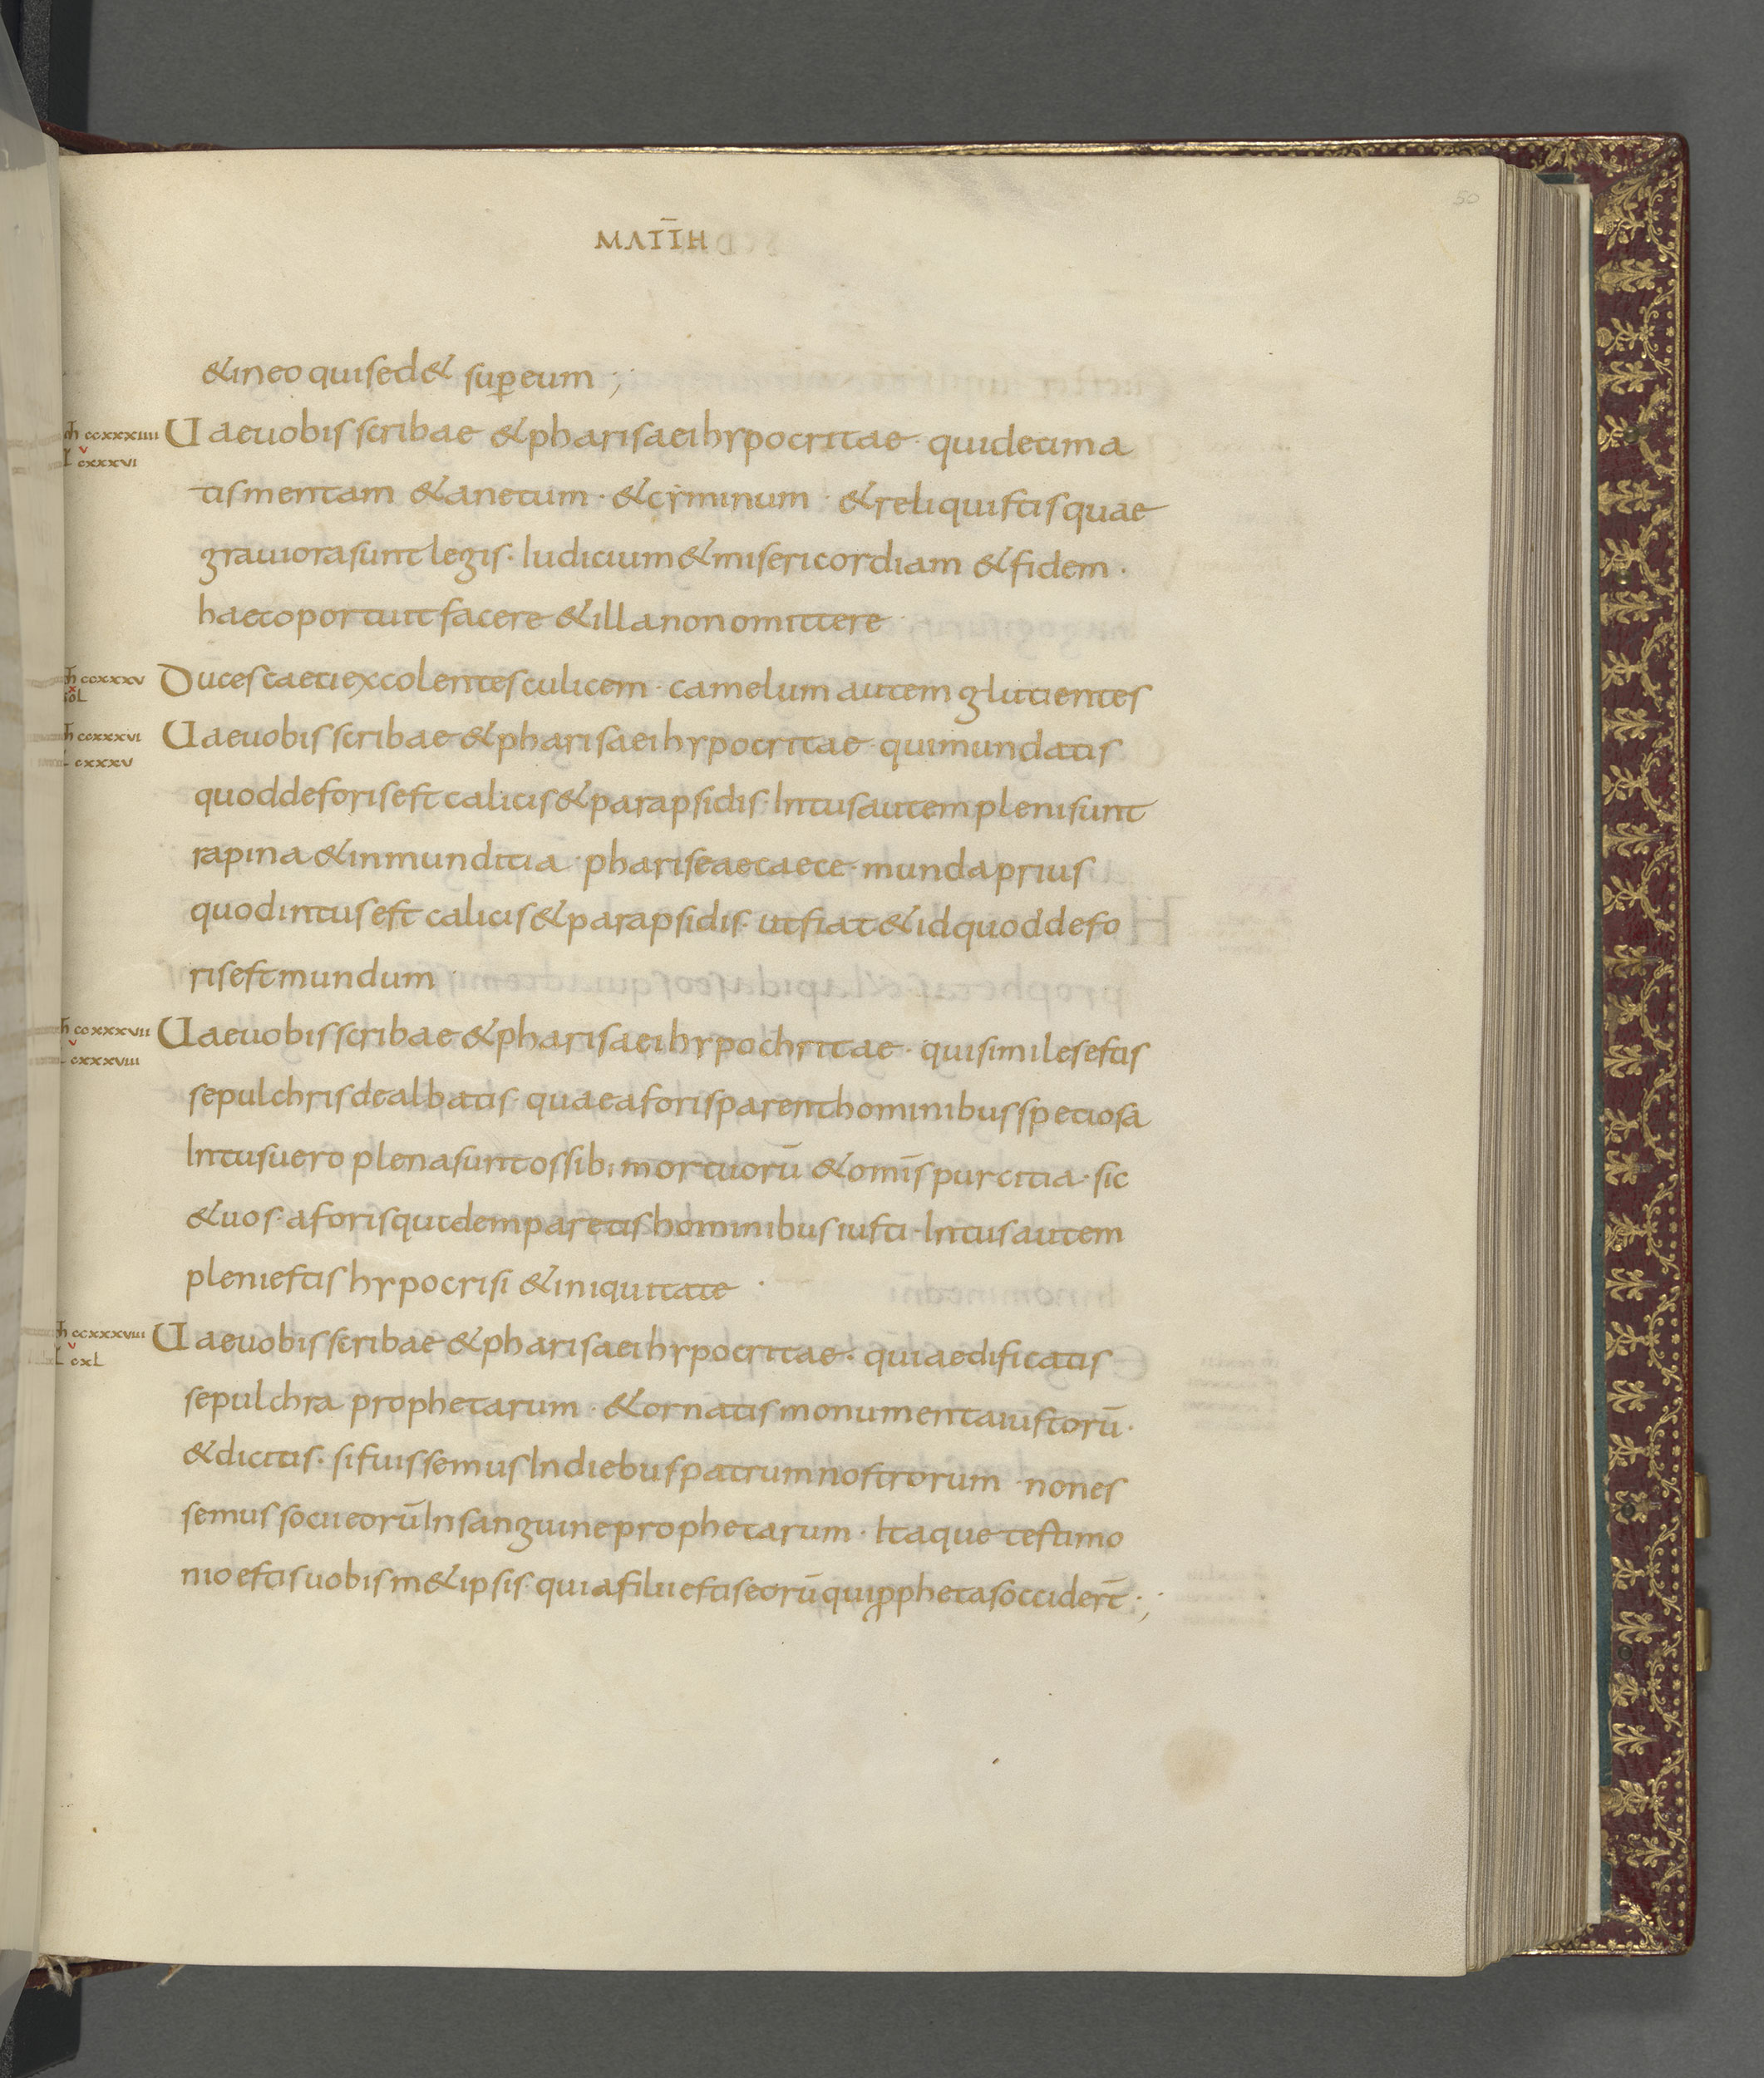 50
MATTH
& in eo qui sed& super eum ;
ṁ ccxxxiiii Uae uobis scribae & pharisaei hypocritae · qui decima
L v cxxxvi tis mentam & anetum · & cyminum · & reliquistis quae
grauiora sunt legis · Iudicium & misericordiam & fidem ·
haec oportuit facere & illa non omittere
ccxxxv Duces caeci excolentes culicem · camelum autem gluttientes
ccxxxvi Uae uobis scribae & pharisaei hypocritae · qui mundatis
cxxxv
quod deforis est calicis & parapsidis · Intus autem pleni sunt
rapina & inmunditia · pharisaee caece · munda prius
quod intus est calicis & parapsidis · ut fiat & id quod defo
ris est mundum
ccxxxvii Uae uobis scribae & pharisaei hypochritae · qui similes estis
v cxxxviii
sepulchris dealbatis · quae aforis parent hominibus speciosa
Intus uero plena sunt ossib; mortuorū & omīspurcitia · sic
& uos · aforis quidem paretis hominibus iusti · Intus autem
pleni estis hypocrisi & iniquitate ·
ccxxxviii Uae uobis scribae & pharisaei hypocritae · qui aedificatis
v cxL
sepulchra prophetarum · & ornatis monumenta iustorū ·
& dicitis · si fuissemus In diebus patrum nostrorum · non es
semus socii eorū In sanguine prophetarum · Itaque testimo
nio estis uobism&ipsis · quia filii estis eorū qui pphetas occidert̄ · ;